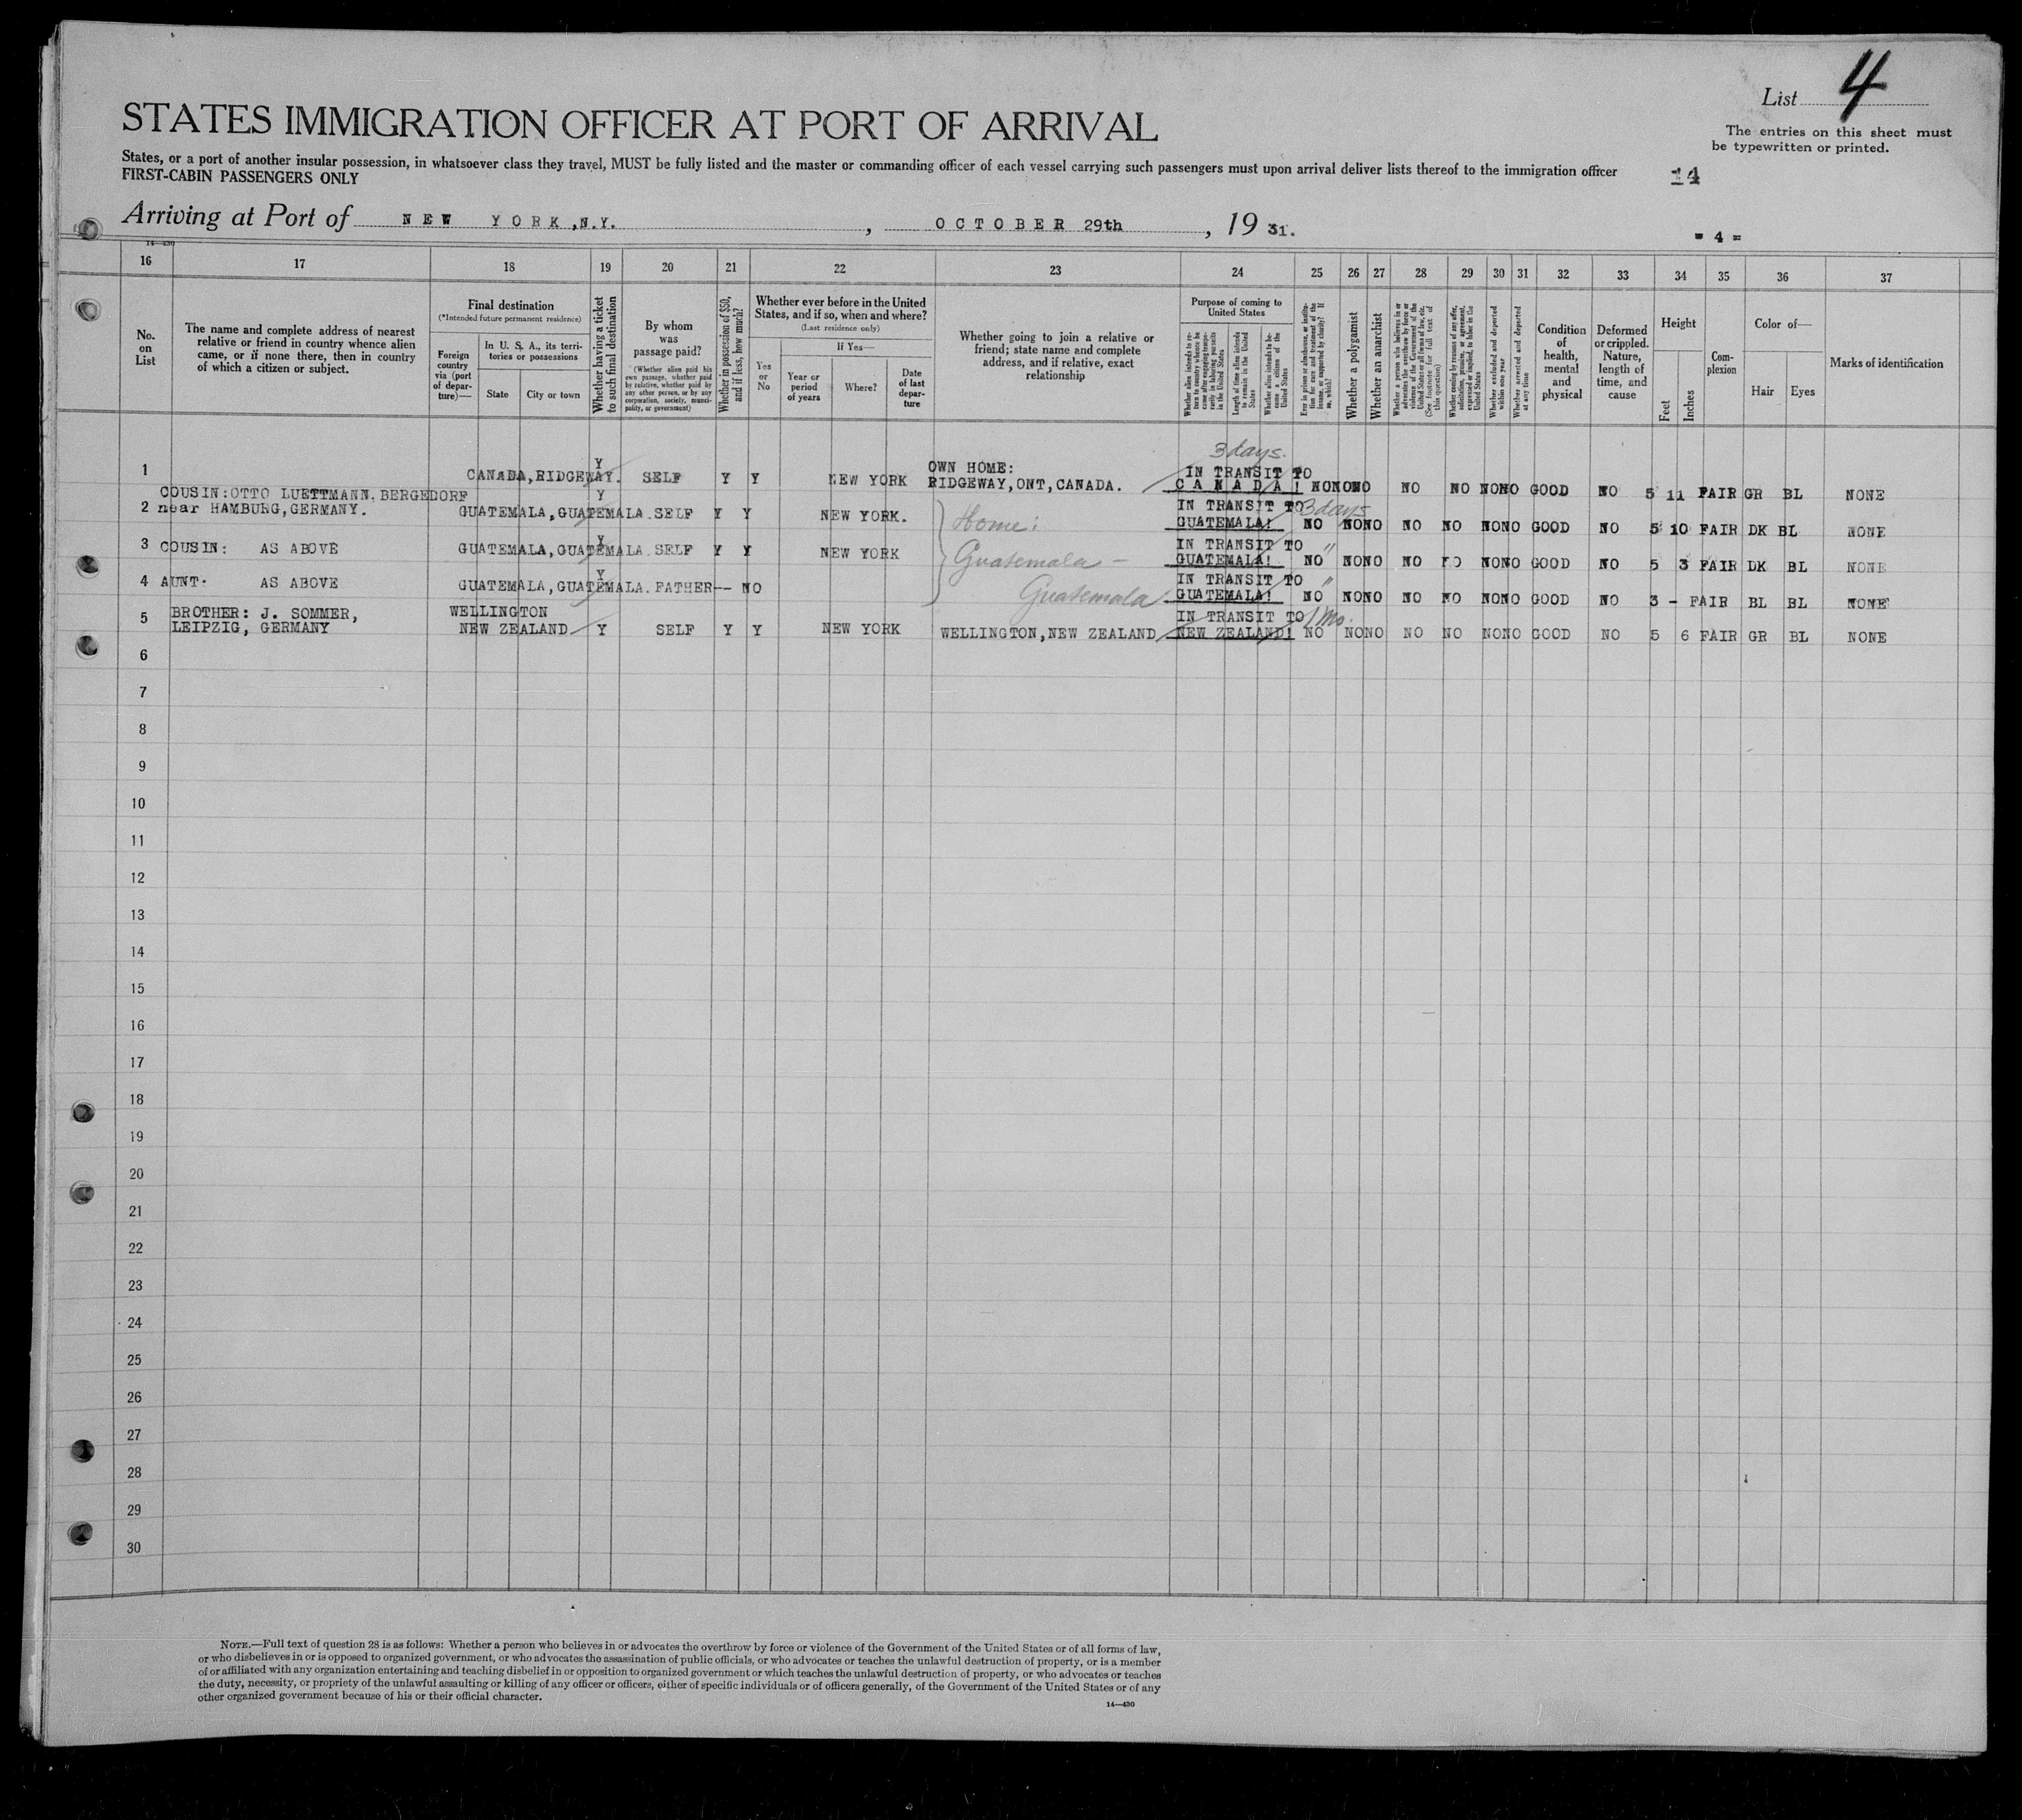 List 4
The entries on this sheet must
be typewritten or printed.
STATES IMMIGRATION OFFICER AT PORT OF ARRIVAL
States, or a port of another insular possession, in whatsoever class they travel, MUST be fully listed and the master or commanding officer of each vessel carrying such passengers must upon arrival deliver lists thereof to the immigration officer
FIRST-CABIN PASSENGERS ONLY
14
Arriving at Port of NEW YORK, N.Y., OCTOBER 29th, 19 31.
= 4 =
14—430
16 17 18 19 20 21 22 23 24 25 26 27 28 29 30 31 32 33 34 35 36 37
No.
on
List
The name and complete address of nearest
relative or friend in country whence alien
came, or if none there, then in country
of which a citizen or subject.
Final destination
(*Intended future permanent residence)
Foreign
country
via (port
of depar-
ture)—
In U. S. A., its terri-
tories or possessions
State
City or town
Whether having a ticket
to such final destination
By whom
was
passage paid?
(Whether alien paid his
own passage, whether paid
by relative, whether paid by
any other person, or by any
corporation, society, munici-
pality, or government)
Whether in possession of $50,
and if less, how much?
Whether ever before in the United
States, and if so, when and where?
(Last residence only)
Yes
or
No
If Yes—
Year or
period
of years
Where?
Date
of last
depar-
ture
Whether going to join a relative or
friend; state name and complete
address, and if relative, exact
relationship
Purpose of coming to
United States
Whether alien intends to re-
turn to country whence he
came after engaging tempo-
rarily in laboring pursuits
in the United States
Length of time alien intends
to remain in the United
States
Whether alien intends to be-
come a citizen of the
United States
Ever in prison or almshouse, or institu-
tion for care and treatment of the
insane, or supported by charity? If
so, which?
Whether a polygamist
Whether an anarchist
Whether a person who believes in or
advocates the overthrow by force or
violence of the Government of the
United States or all forms of law, etc.
(See footnote for full text of
this question)
Whether coming by reason of any offer,
solicitation, promise, or agreement,
expressed or implied, to labor in the
United States
Whether excluded and deported
within one year
Whether arrested and deported
at any time
Condition
of
health,
mental
and
physical
Deformed
or crippled.
Nature,
length of
time, and
cause
Height
Feet
Inches
Com-
plexion
Color of—
Hair
Eyes
Marks of identification
3 days.
1 CANADA, RIDGEWAY. Y SELF Y Y NEW YORK OWN HOME:
RIDGEWAY, ONT, CANADA. IN TRANSIT TO
CANADA! NO NO NO NO NO NO NO GOOD NO 5 11 FAIR GR BL NONE
COUSIN: OTTO LUETTMANN, BERGEDORF
2 near HAMBURG, GERMANY. GUATEMALA, GUATEMALA. Y SELF Y Y NEW YORK. Home: IN TRANSIT TO 3 days
GUATEMALA! NO NO NO NO NO NO NO GOOD NO 5 10 FAIR DK BL NONE
3 COUSIN: AS ABOVE GUATEMALA, GUATEMALA. Y SELF Y Y NEW YORK Guatemala — IN TRANSIT TO "
GUATEMALA! NO NO NO NO NO NO NO GOOD NO 5 3 FAIR DK BL NONE
4 AUNT: AS ABOVE GUATEMALA, GUATEMALA. Y FATHER -- NO Guatemala. IN TRANSIT TO "
GUATEMALA! NO NO NO NO NO NO NO GOOD NO 3 - FAIR BL BL NONE
5 BROTHER: J. SOMMER,
LEIPZIG, GERMANY WELLINGTON
NEW ZEALAND Y SELF Y Y NEW YORK WELLINGTON, NEW ZEALAND IN TRANSIT TO 1 Mo.
NEW ZEALAND! NO NO NO NO NO NO NO GOOD NO 5 6 FAIR GR BL NONE
6
7
8
9
10
11
12
13
14
15
16
17
18
19
20
21
22
23
24
25
26
27
28
29
30
NOTE.—Full text of question 28 is as follows: Whether a person who believes in or advocates the overthrow by force or violence of the Government of the United States or of all forms of law,
or who disbelieves in or is opposed to organized government, or who advocates the assassination of public officials, or who advocates or teaches the unlawful destruction of property, or is a member
of or affiliated with any organization entertaining and teaching disbelief in or opposition to organized government or which teaches the unlawful destruction of property, or who advocates or teaches
the duty, necessity, or propriety of the unlawful assaulting or killing of any officer or officers, either of specific individuals or of officers generally, of the Government of the United States or of any
other organized government because of his or their official character.
14—430